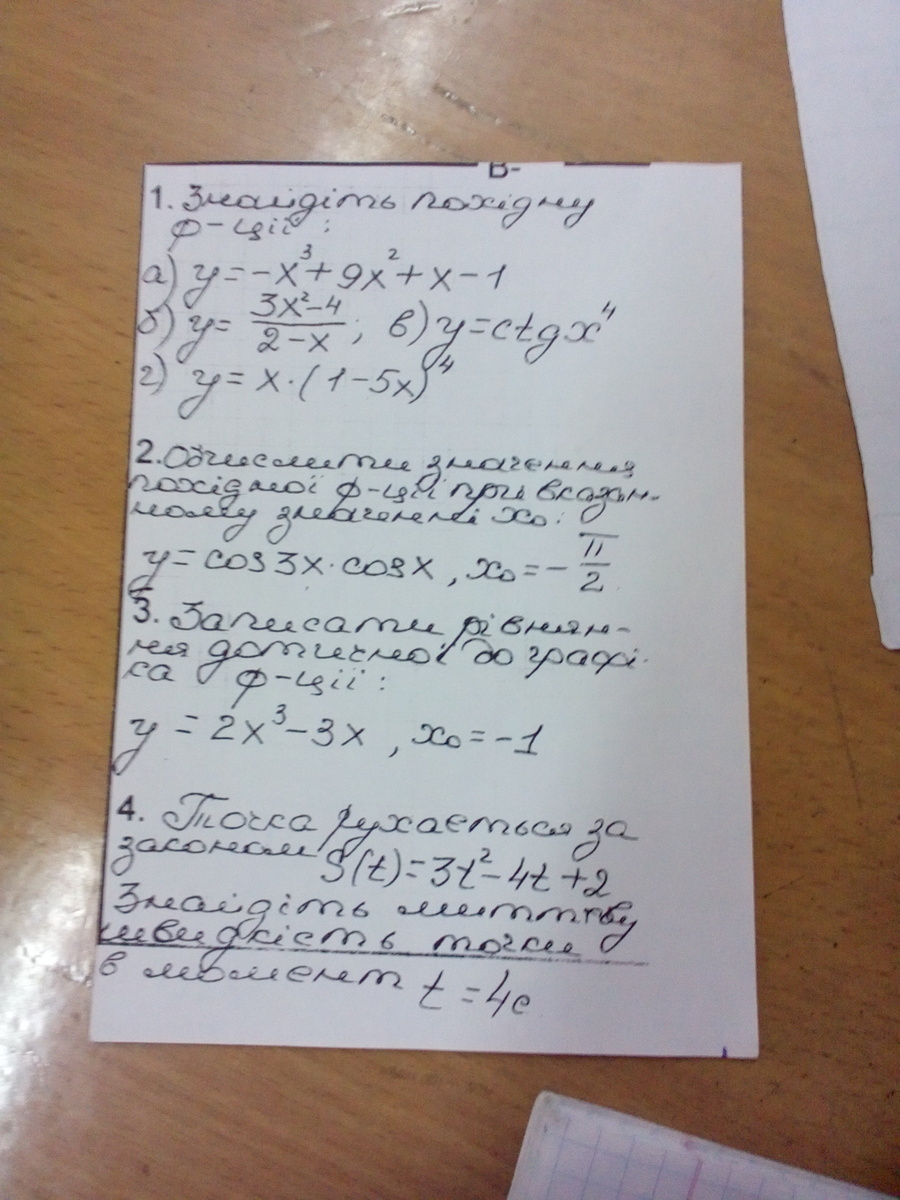 В-
1. Знайдіть похідну
ф-ції :
а) y = -x³ + 9x² + x - 1
б) y = (3x² - 4)/(2 - x) ; в) y = ctgx⁴
г) y = x·(1-5x)⁴
2. Обчислити значення
похідної ф-ції при вказан-
ному значенні x₀:
y = cos3x·cosx , x₀ = -π/2
3. Записати рівнян-
ня дотичної до графі-
ка ф-ції :
y = 2x³ - 3x , x₀ = -1
4. Точка рухається за
законом S(t) = 3t² - 4t + 2
Знайдіть миттєву
швидкість точки
в момент t = 4c